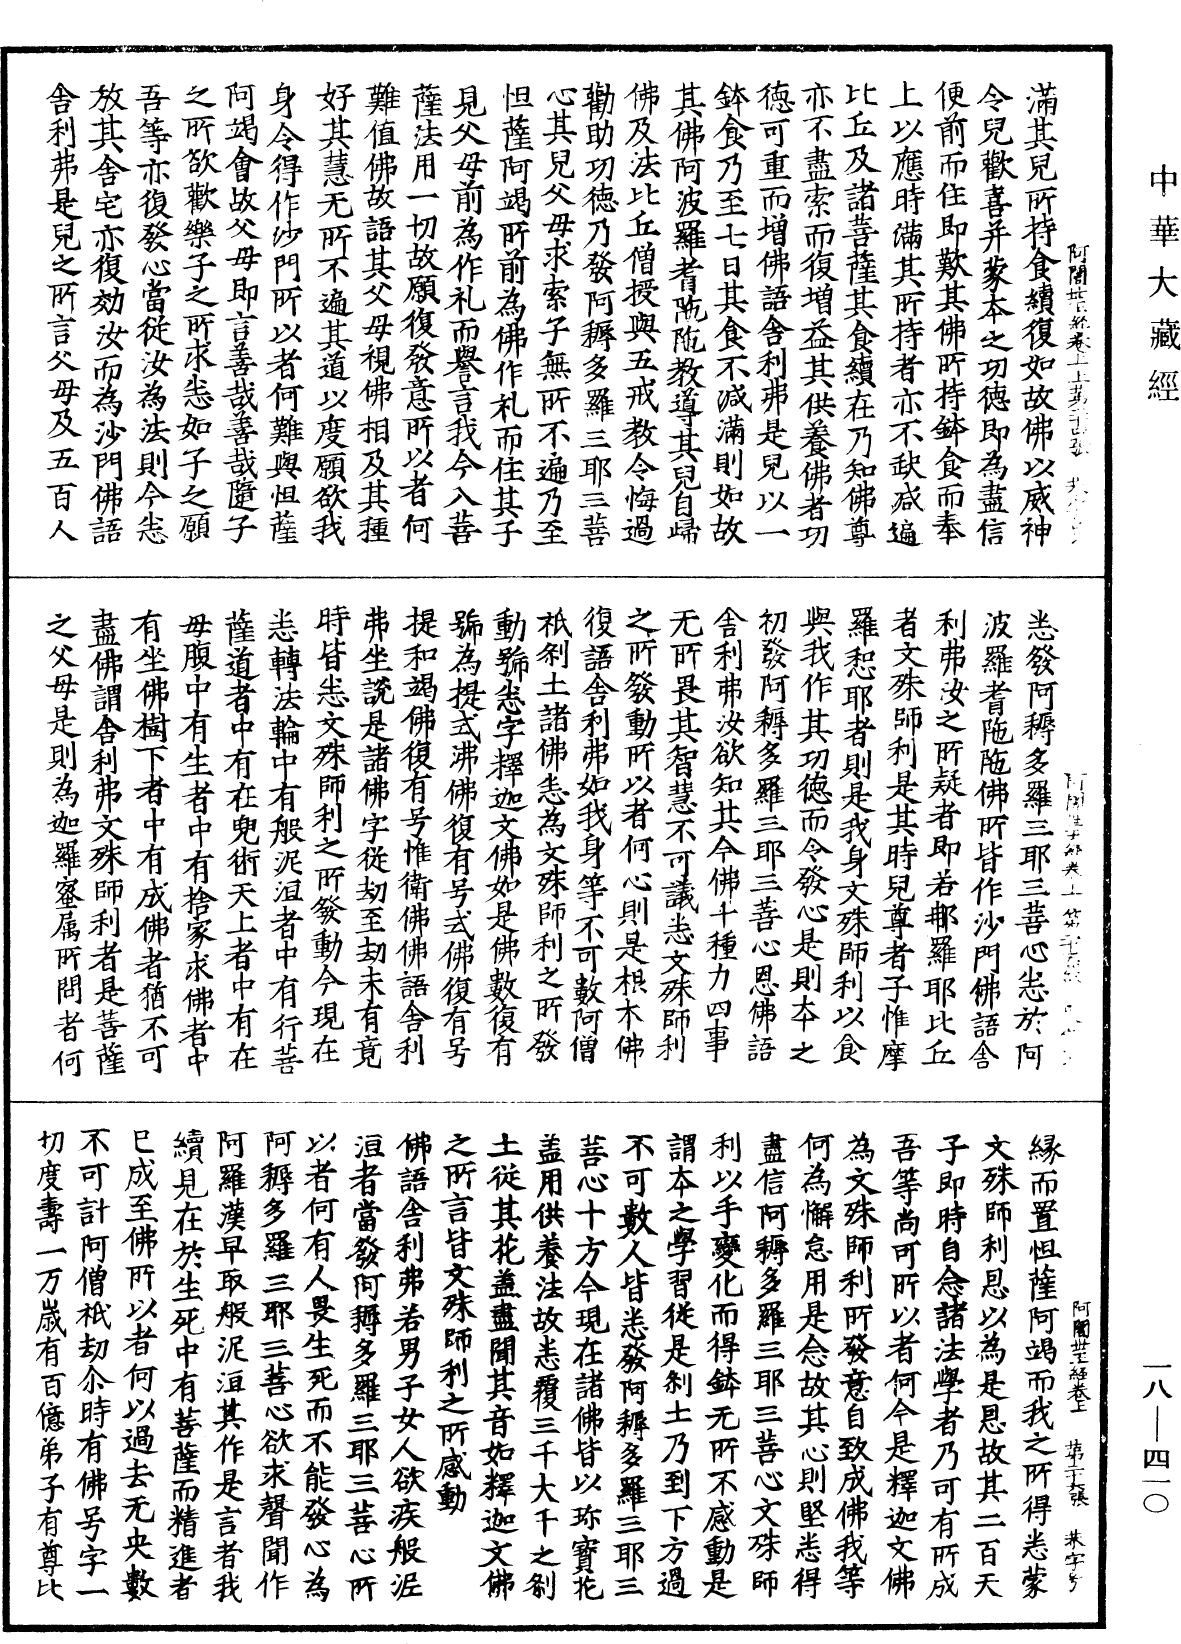 中華大藏經
滿其兒所持食續復如故佛以威神
令兒歡喜并蒙本之功德即為盡信
便前而住即歎其佛所持鉢食而奉
上以應時滿其所持者亦不缺減遍
比丘及諸菩薩其食續在乃知佛尊
亦不盡索而復增益其供養佛者功
德可重而增佛語舍利弗是兒以一
鉢食乃至七日其食不減滿則如故
其佛阿波羅耆陁陁教導其兒自歸
佛及法比丘僧授與五戒教令悔過
勸助功德乃發阿耨多羅三耶三菩
心其兒父母求索子無所不遍乃至
怛薩阿竭所前為佛作礼而住其子
見父母前為作礼而譽言我今入菩
薩法用一切故願復發意所以者何
難值佛故語其父母視佛相及其種
好其慧无所不遍其道以度願欲我
身令得作沙門所以者何難與怛薩
阿竭會故父母即言善哉善哉隨子
之所欲歡樂子之所求悉如子之願
吾等亦復發心當從汝為法則今悉
放其舍宅亦復効汝而為沙門佛語
舍利弗是兒之所言父母及五百人
悉發阿耨多羅三耶三菩心悉於阿
波羅耆陁陁佛所皆作沙門佛語舍
利弗汝之所疑者即若那羅耶比丘
者文殊師利是其時兒尊者子惟摩
羅恕耶者則是我身文殊師利以食
與我作其功德而令發心是則本之
初發阿耨多羅三耶三菩心恩佛語
舍利弗汝欲知其今佛十種力四事
无所畏其智慧不可議悉文殊師利
之所發動所以者何心則是根木佛
復語舍利弗如我身等不可數阿僧
祇剎土諸佛悉為文殊師利之所發
動號悉字釋迦文佛如是佛數復有
號為提式沸佛復有号式佛復有号
提和竭佛復有号惟衛佛佛語舍利
弗坐說是諸佛字從劫至劫未有竟
時皆悉文殊師利之所發動今現在
悉轉法輪中有般泥洹者中有行菩
薩道者中有在兜術天上者中有在
母腹中有生者中有捨家求佛者中
有坐佛樹下者中有成佛者猶不可
盡佛謂舍利弗文殊師利者是菩薩
之父母是則為迦羅蜜属所問者何
緣而置怛薩阿竭而我之所得悉蒙
文殊師利恩以為是恩故其二百天
子即時自念諸法學者乃可有所成
吾等尚可所以者何今是釋迦文佛
為文殊師利所發意自致成佛我等
何為懈怠用是念故其心則堅悉得
盡信阿耨多羅三耶三菩心文殊師
利以手變化而得鉢无所不感動是
謂本之學習從是剎土乃到下方過
不可數人皆悉發阿耨多羅三耶三
菩心十方今現在諸佛皆以珎寶花
盖用供養法故悉覆三千大千之剎
土從其花盖盡聞其音如釋迦文佛
之所言皆文殊師利之所感動
佛語舍利弗若男子女人欲疾般泥
洹者當發阿耨多羅三耶三菩心所
以者何有人畏生死而不能發心為
阿耨多羅三耶三菩心欲求聲聞作
阿羅漢早取般泥洹其作是言者我
續見在於生死中有菩薩而精進者
已成至佛所以者何以過去无央數
不可計阿僧祇劫尒時有佛号字一
切度壽一万歲有百億弟子有尊比
阿闍世王經卷上 第二十六張
一八—四一〇